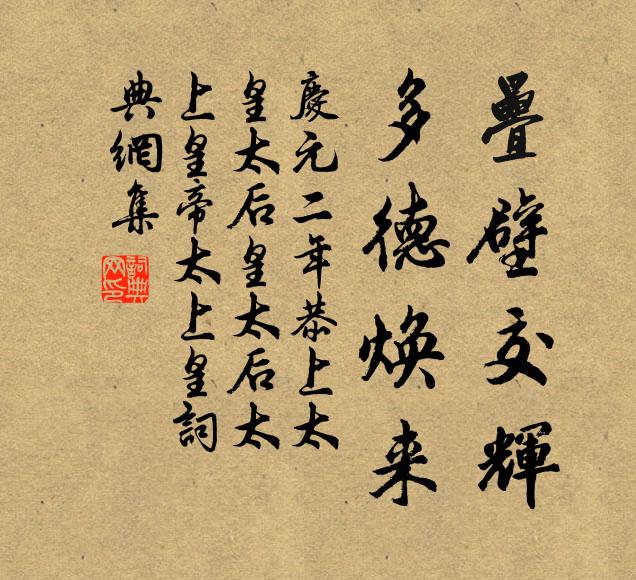 疊壁交輝
多德煥来
慶元二年恭上太
皇太后皇太后太
上皇帝太上皇詞
典網集
詞典
网印